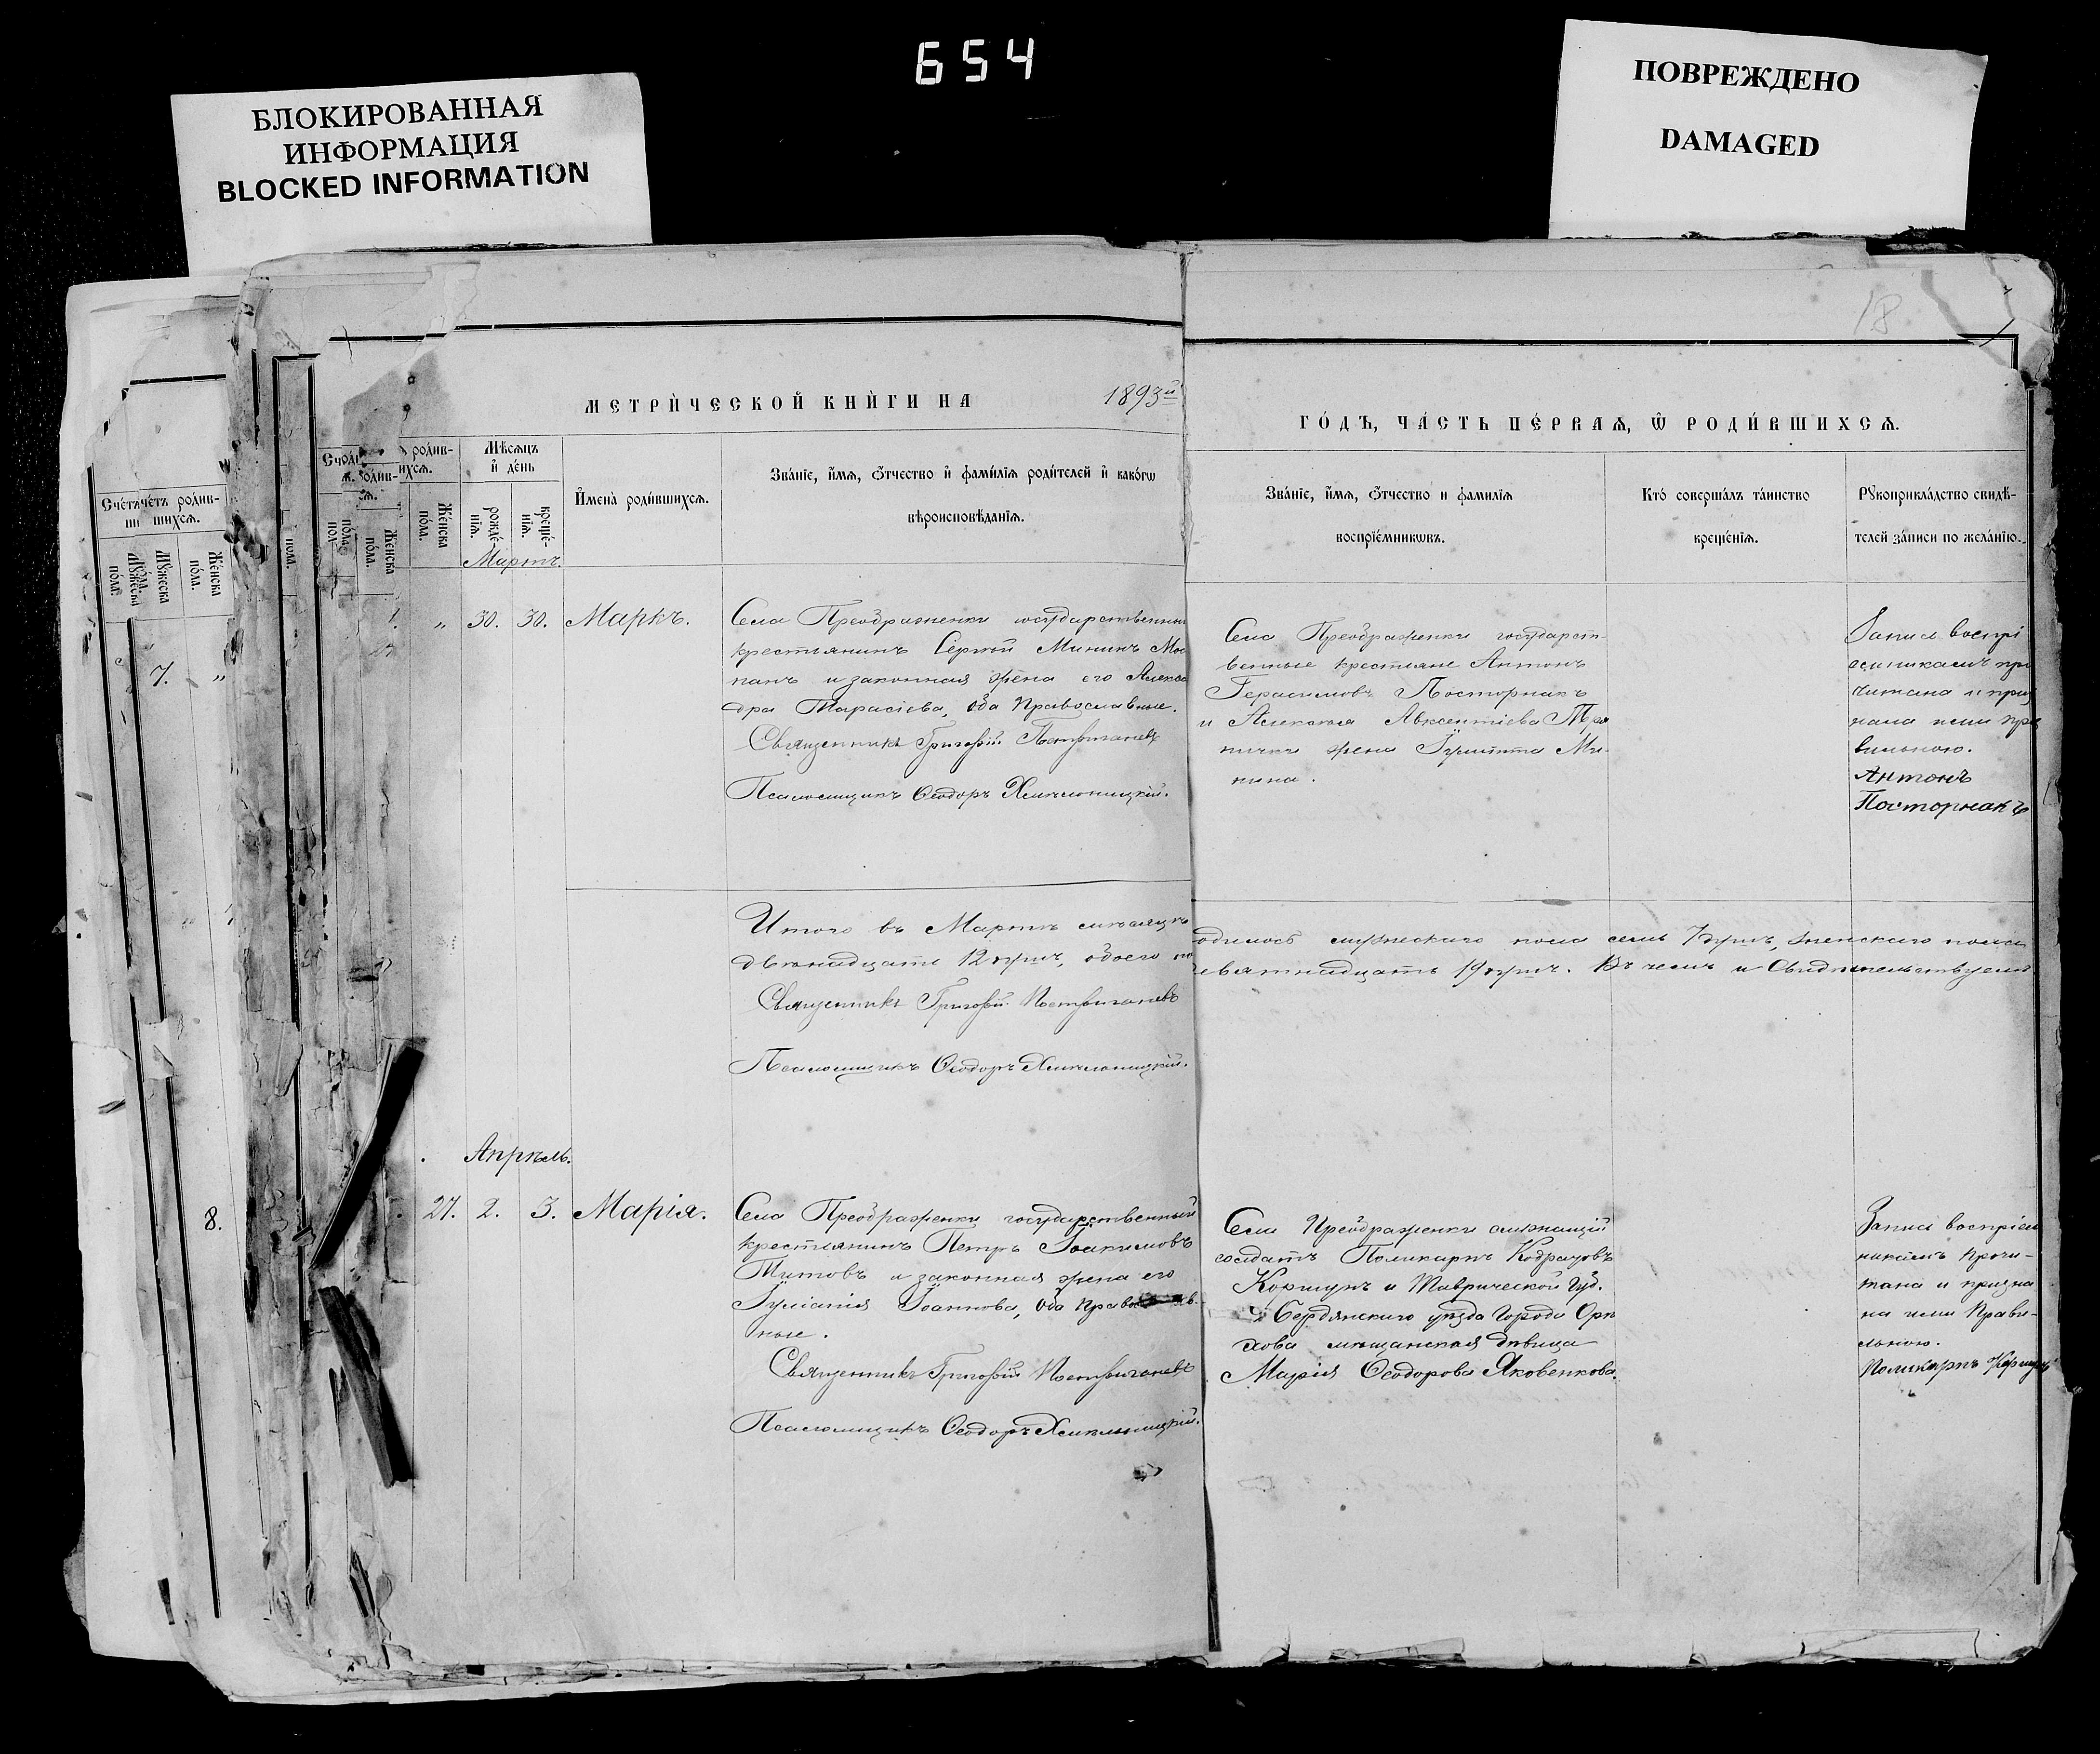 654
БЛОКИРОВАННАЯ
ИНФОРМАЦИЯ
BLOCKED INFORMATION
ПОВРЕЖДЕНО
DAMAGED
18
МЕТРИ́ЧЕСКОЙ КНИ́ГИ НА 1893й
ГО́ДЪ, ЧА́СТЬ ПЕ́РВАѦ, Ѿ РОДИ́ВШИХСѦ.
родив-
ихсѧ.
Же́нска
по́ла.
Мѣ́сѧцъ
и҆ де́нь
рожде́-
нїѧ.
креще́-
нїѧ.
И҆мена̀ роди́вшихсѧ.
Зва́нїе, и҆́мѧ, ѻ҆́тчество и҆ фами́лїѧ роди́телей и҆ како́гѡ
вѣроисповѣ́данїѧ.
Зва́нїе, и҆́мѧ, ѻ҆́тчество и фами́лїѧ
воспрїе́мникѡвъ.
Кто́ соверша́лъ та́инство
креще́нїѧ.
Рꙋкоприкла́дство свидѣ́-
телей за́писи по жела́нїю.
Счетъ родив-
шихсѧ.
Мꙋжеска
по́ла.
Же́нска
по́ла.
Мартъ.
7. „
1. „ 30. 30. Маркъ.
Села Преображенки государственный
крестьянинъ Сергѣй Мининъ Мос
панъ и законная жена его Алексан
дра Тарасіева, оба Православные.
Священникъ Григорій
Псаломщикъ Ѳеодоръ Хмѣльницкій.
Села Преображенки государст-
венные крестьяне Антонъ
Герасимовъ Посторнакъ
и Авксентіева
жена Ми-
нина.
Запись воспрі
емникамъ про
читана и приз
нана ими пра
вильною.
Антонъ
Посторнакъ
Итого въ Мартѣ мѣсяцѣ
родилось мужескаго пола семь 7 душъ, женскаго пола
двѣнадцать 12 душъ, обоего по
девятнадцать 19 душъ. Въ чемъ и Свидѣтельствуемъ
Священникъ Григорій
Псаломщикъ Ѳеодоръ Хмѣльницкій.
Апрѣль.
8.
27. 2. 3. Марія.
Села Преображенки государственный
крестьянинъ Петръ Іоакимовъ
Титовъ и законная жена его
Іуліанія Іоаннова, оба Православ-
ные.
Священникъ Григорій
Псаломщикъ Ѳеодоръ Хмѣльницкій.
Села Преображенки служащій
солдатъ Поликарпъ
Коршунъ и Таврической Губ.
Бердянскаго уѣзда Города Орѣ
хова мѣщанская дѣвица
Марія Ѳеодорова Яковенкова.
Запись воспріем
никамъ прочи-
тана и призна
на ими Прави-
льною.
Поликарпъ Коршунъ